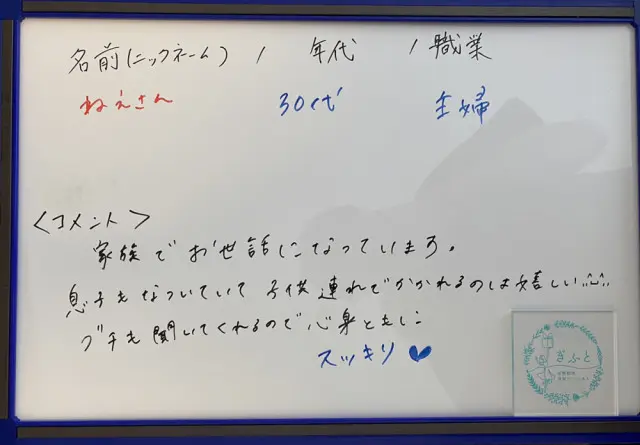 名前(ニックネーム) / 年代 / 職業
ねえさん 30代 主婦
<コメント>
家族でお世話になっています。
息子もなついていて子供連れでかかれるのは嬉しい
グチも聞いてくれるので心身ともに
スッキリ♥
ぎふと